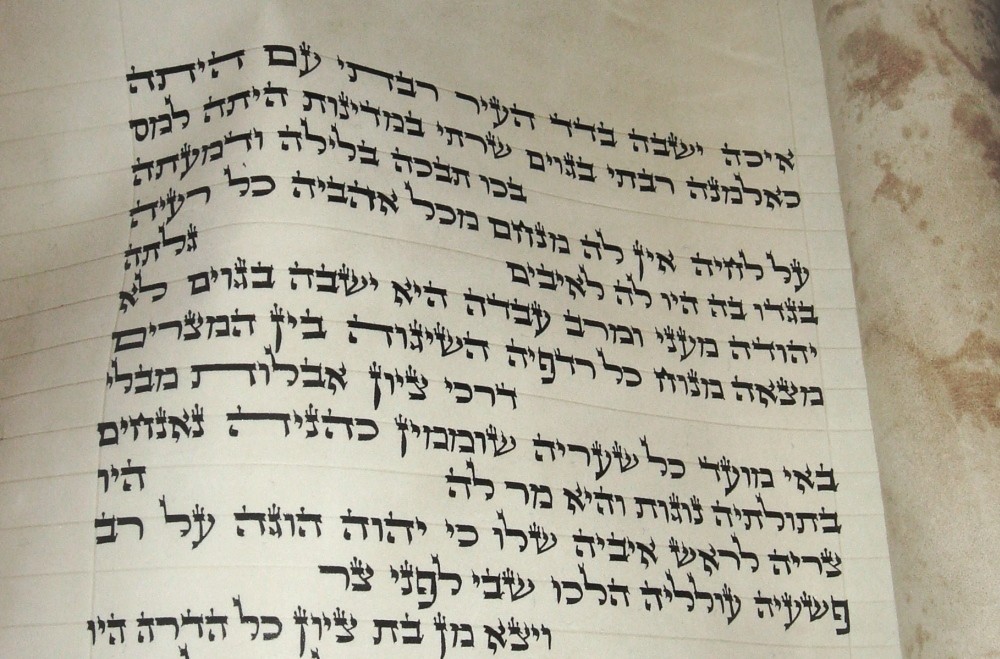 איכה ישבה בדד העיר רבתי עם היתה
כאלמנה רבתי בגוים שרתי במדינות היתה למס
בכו תבכה בלילה ודמעתה
על לחיה אין לה מנחם מכל אהביה כל רעיה
בגדו בה היו לה לאיבים גלתה
יהודה מעני ומרב עבדה היא ישבה בגוים לא
מצאה מנוח כל רדפיה השיגוה בין המצרים
דרכי ציון אבלות מבלי
באי מועד כל שעריה שוממין כהניה נאנחים
בתולתיה נוגות והיא מר לה היו
צריה לראש איביה שלו כי יהוה הוגה על רב
פשעיה עולליה הלכו שבי לפני צר
ויצא מן בת ציון כל הדרה היו